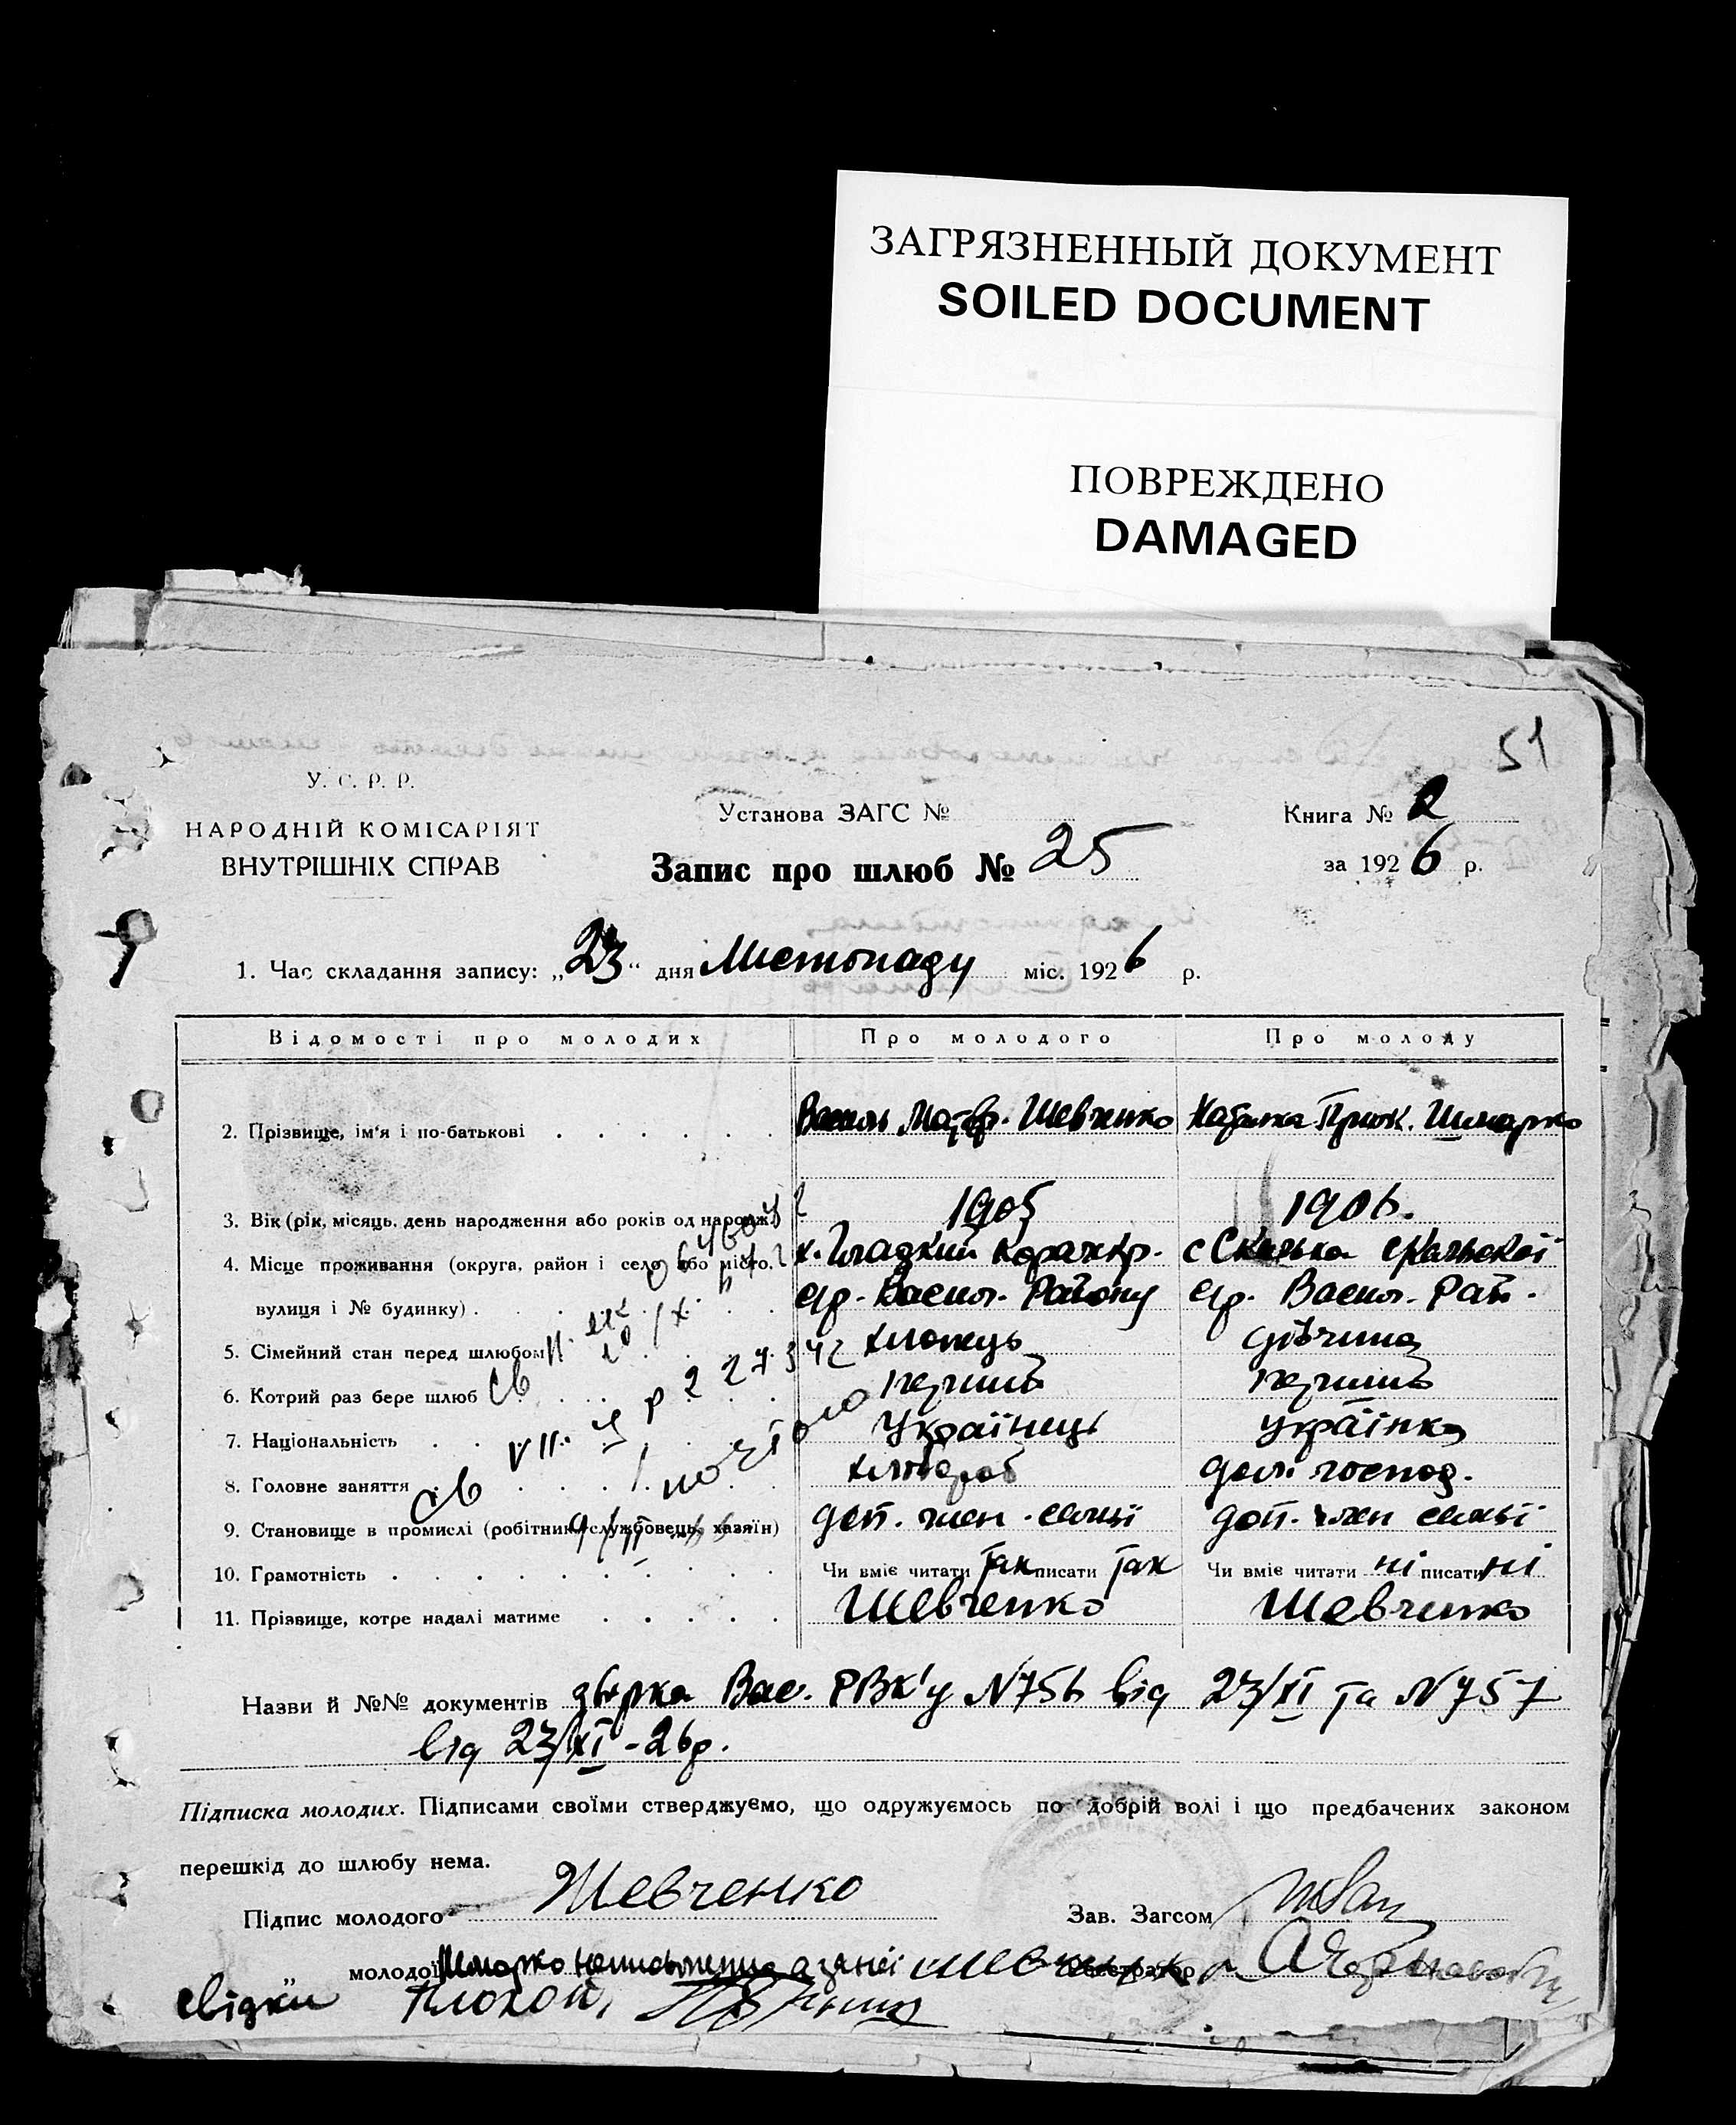 ЗАГРЯЗНЕННЫЙ ДОКУМЕНТ
SOILED DOCUMENT
ПОВРЕЖДЕНО
DAMAGED
51
У. С. Р. Р.
НАРОДНІЙ КОМІСАРІЯТ
ВНУТРІШНІХ СПРАВ
Установа ЗАГС №
Запис про шлюб № 25
Книга № 2
за 1926 р.
1. Час складання запису: „23“ дня Листопаду міс. 1926 р.
Відомості про молодих Про молодого Про молоду
2. Прізвище, ім'я і по-батькові Василь Матв. Шевченко
3. Вік (рік, місяць, день народження або років од народж.) 1905 1906.
4. Місце проживання (округа, район і село або місто, х. Гладкий с Скелька Скельської
вулиця і № будинку) с/р. Васил. Району с/р. Васил. Рай.
5. Сімейний стан перед шлюбом хлопець дівчина
6. Котрий раз бере шлюб перший перший
7. Національність Українець Українка
8. Головне заняття хлібороб дом. господ.
9. Становище в промислі (робітник, службовець, хазяїн) доп. член. семьї доп. член семьї
10. Грамотність Чи вміє читати так писати так Чи вміє читати ні писати ні
11. Прізвище, котре надалі матиме Шевченко Шевченко
Назви й №№ документів Вас. РВК'у N756 від 23/XI та N757
від 23/XI-26р.
Підписка молодих. Підписами своїми стверджуємо, що одружуємось по добрій волі і що предбачених законом
перешкід до шлюбу нема.
Підпис молодого Шевченко Зав. Загсом
„ молодої Шмарко неписьменна а за неї Реєстратор
свідки Плохой,